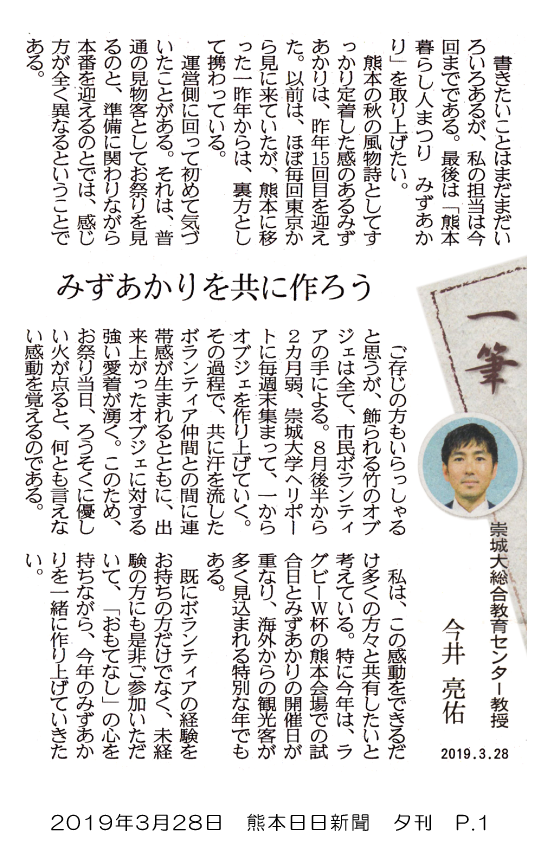 一筆
崇城大総合教育センター教授
今井 亮佑
2019.3.28
みずあかりを共に作ろう
書きたいことはまだまだい
ろいろあるが、私の担当は今
回までである。最後は「熊本
暮らし人まつり　みずあか
り」を取り上げたい。
熊本の秋の風物詩としてす
っかり定着した感のあるみず
あかりは、昨年15回目を迎え
た。以前は、ほぼ毎回東京か
ら見に来ていたが、熊本に移
った一昨年からは、裏方とし
て携わっている。
運営側に回って初めて気づ
いたことがある。それは、普
通の見物客としてお祭りを見
るのと、準備に関わりながら
本番を迎えるのとでは、感じ
方が全く異なるということで
ある。
ご存じの方もいらっしゃる
と思うが、飾られる竹のオブ
ジェは全て、市民ボランティ
アの手による。８月後半から
２カ月弱、崇城大学ヘリポー
トに毎週末集まって、一から
オブジェを作り上げていく。
その過程で、共に汗を流した
ボランティア仲間との間に連
帯感が生まれるとともに、出
来上がったオブジェに対する
強い愛着が湧く。このため、
お祭り当日、ろうそくに優し
い火が点ると、何とも言えな
い感動を覚えるのである。
私は、この感動をできるだ
け多くの方々と共有したいと
考えている。特に今年は、ラ
グビーＷ杯の熊本会場での試
合日とみずあかりの開催日が
重なり、海外からの観光客が
多く見込まれる特別な年でも
ある。
既にボランティアの経験を
お持ちの方だけでなく、未経
験の方にも是非ご参加いただ
いて、「おもてなし」の心を
持ちながら、今年のみずあか
りを一緒に作り上げていきた
い。
2019年3月28日　熊本日日新聞　夕刊　P.1